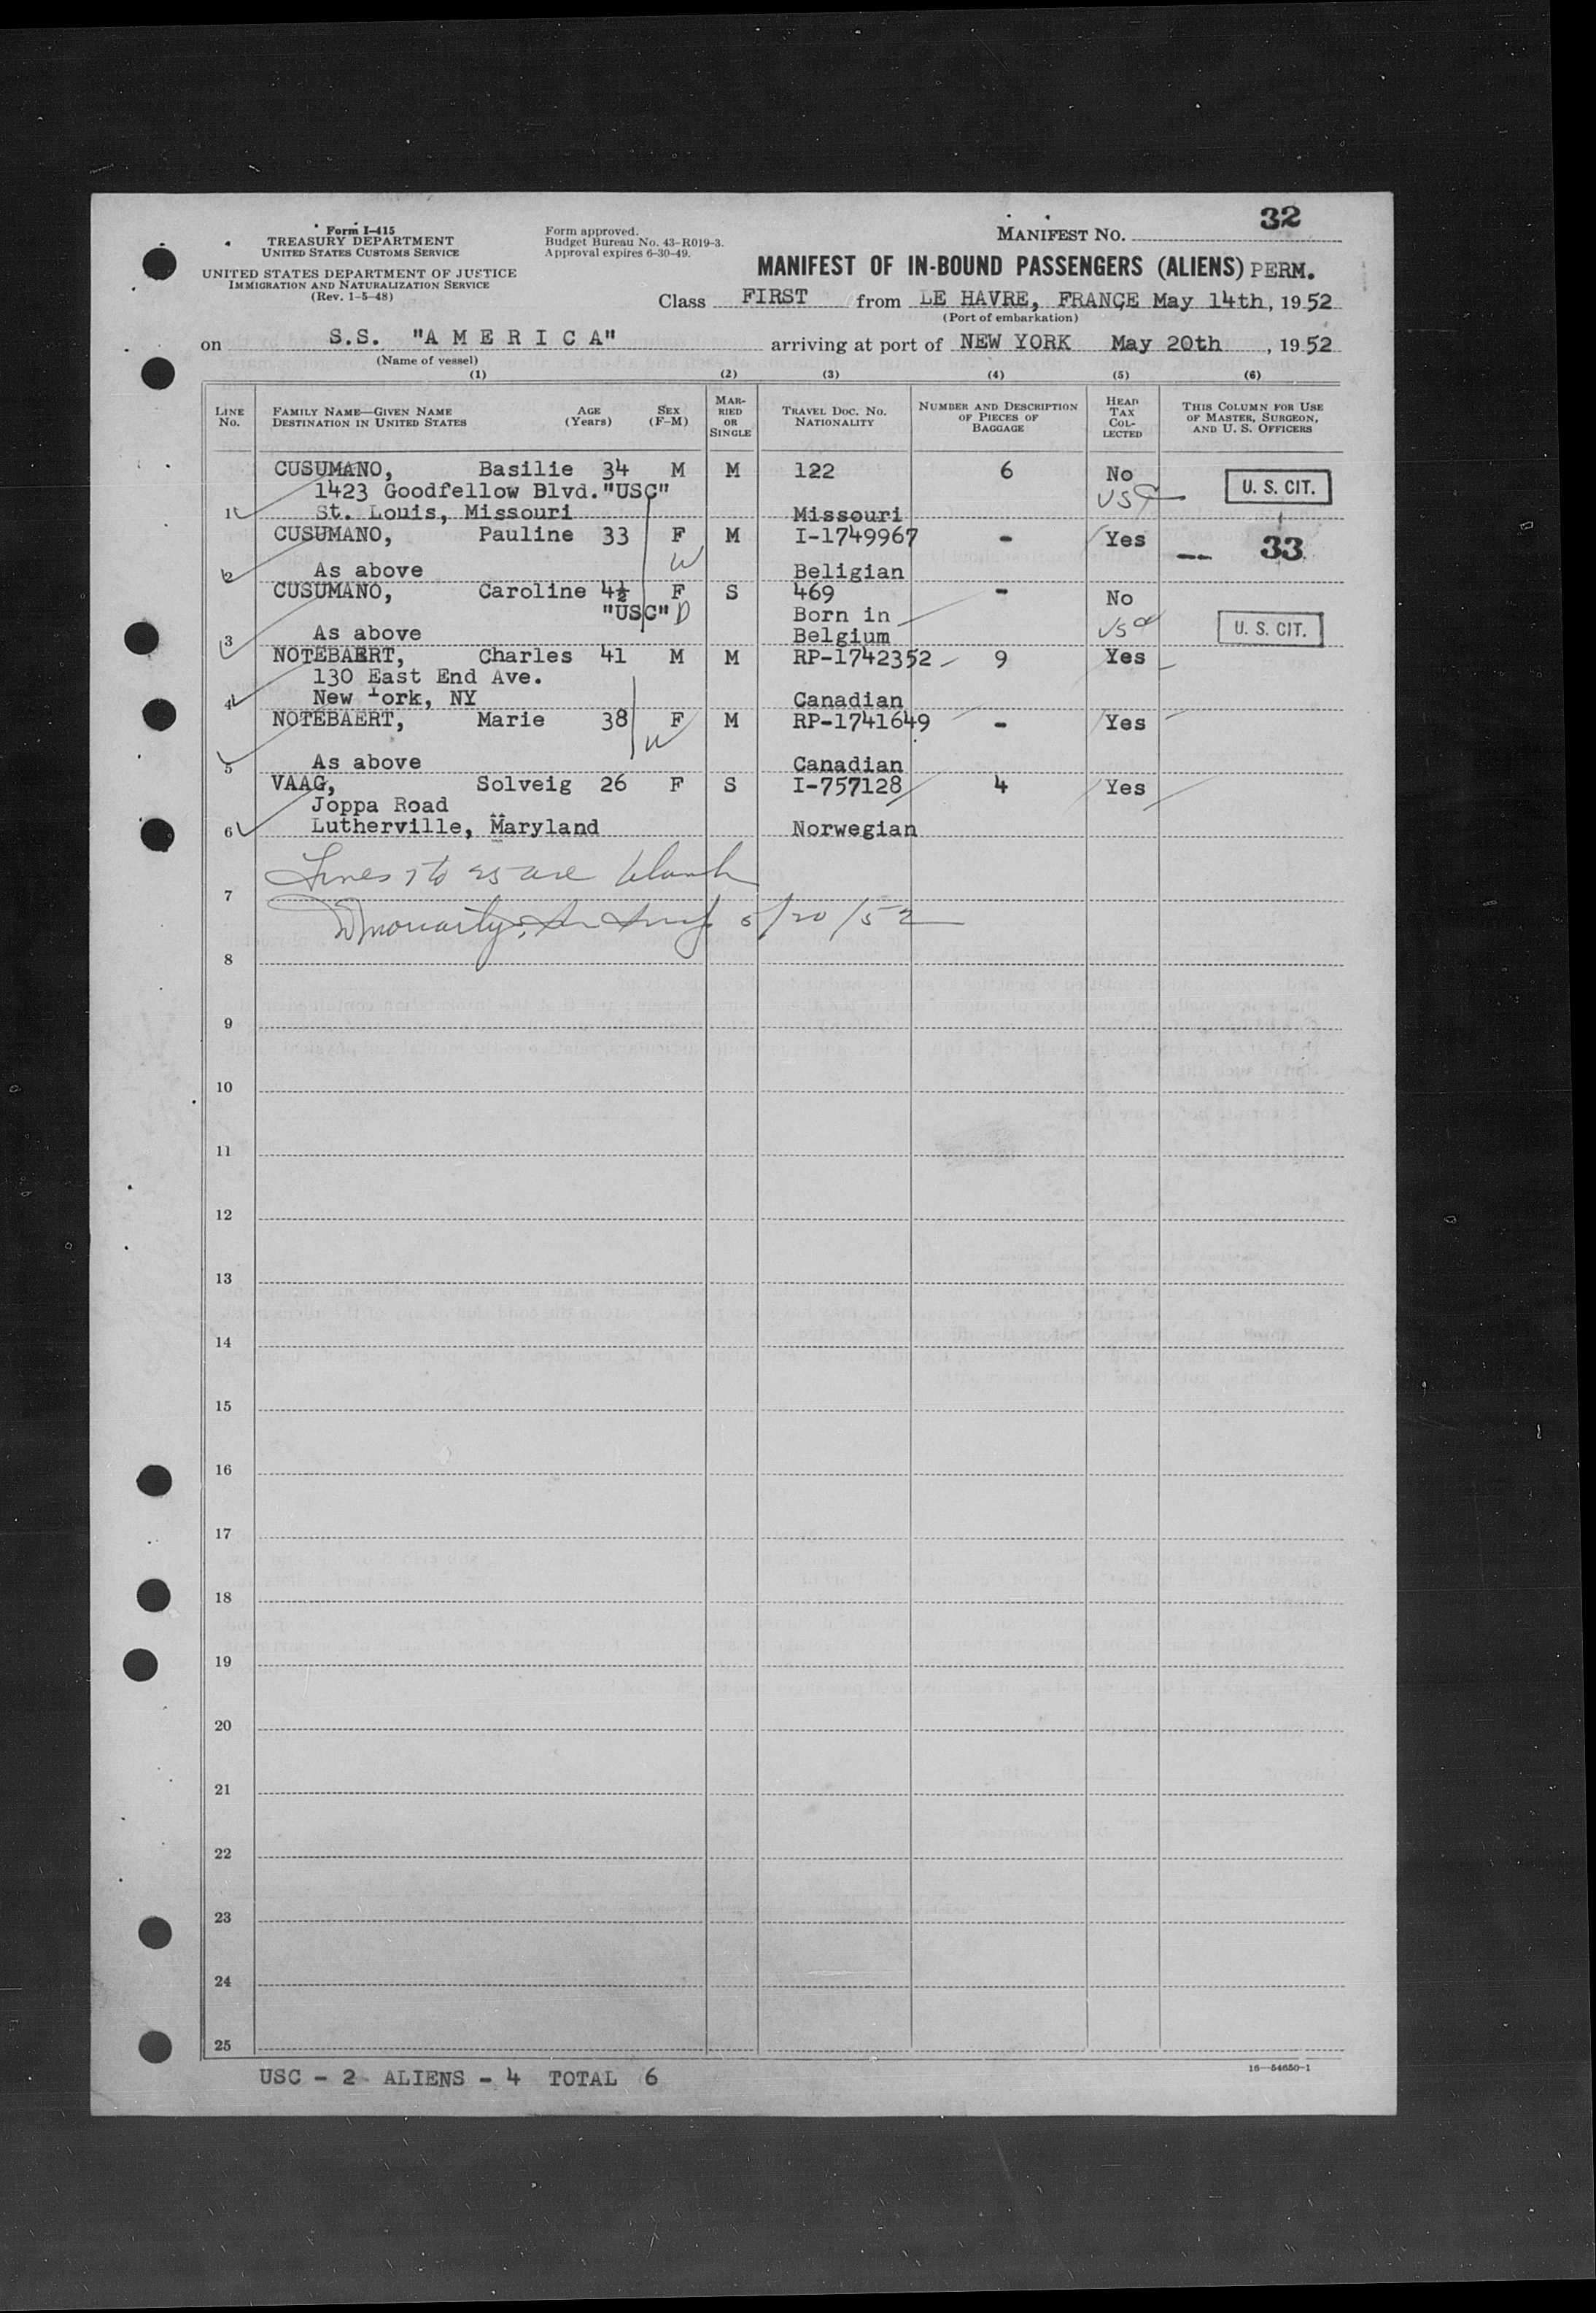 Form I-415
TREASURY DEPARTMENT
UNITED STATES CUSTOMS SERVICE
UNITED STATES DEPARTMENT OF JUSTICE
IMMIGRATION AND NATURALIZATION SERVICE
(Rev. 1-5-48)
Form approved.
Budget Bureau No. 43-R019-3.
Approval expires 6-30-49.
MANIFEST NO. 32
MANIFEST OF IN-BOUND PASSENGERS (ALIENS) PERM.
Class FIRST from LE HAVRE, FRANCE May 14th, 1952
(Port of embarkation)
on S.S. "A M E R I C A" arriving at port of NEW YORK May 20th, 1952
(Name of vessel)
(1) (2) (3) (4) (5) (6)
LINE No. FAMILY NAME—GIVEN NAME DESTINATION IN UNITED STATES AGE (Years) SEX (F-M) MARRIED OR SINGLE TRAVEL DOC. NO. NATIONALITY NUMBER AND DESCRIPTION OF PIECES OF BAGGAGE HEAD TAX COLLECTED THIS COLUMN FOR USE OF MASTER, SURGEON, AND U. S. OFFICERS
CUSUMANO, Basilie 34 M M 122 6 No
1423 Goodfellow Blvd. "USC" USC U. S. CIT.
1 St. Louis, Missouri Missouri
CUSUMANO, Pauline 33 F M I-1749967 - Yes -- 33
W
2 As above Beligian
CUSUMANO, Caroline 4½ F S 469 - No
"USC" D Born in
3 As above Belgium USC U. S. CIT.
NOTEBAERT, Charles 41 M M RP-1742352 9 Yes
130 East End Ave.
4 New York, NY Canadian
NOTEBAERT, Marie 38 F M RP-1741649 - Yes
W
5 As above Canadian
VAAG, Solveig 26 F S I-757128 4 Yes
Joppa Road
6 Lutherville, Maryland Norwegian
Lines 7 to 25 are blank
7
Moriarty, 5/20/52
8
9
10
11
12
13
14
15
16
17
18
19
20
21
22
23
24
25
USC - 2 ALIENS - 4 TOTAL 6
16—54650-1